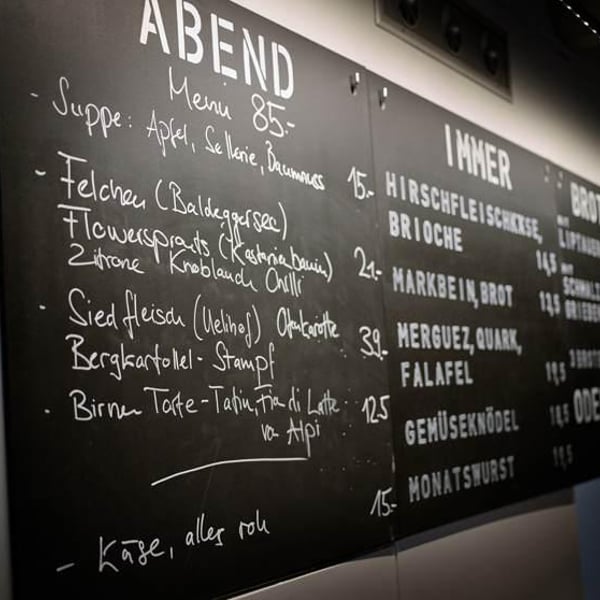 ABEND
Menü 85.-
- Suppe: Apfel, Sellerie, Baumnuss 15.-
- Felchen (Baldeggersee)
Flowersprouts (Kastanienbaum) 21.-
Zitrone Knoblauch Chilli
- Siedfleisch (Uelihof) Ofenkarotte 39.-
Bergkartoffel-Stampf
- Birnen Tarte-Tatin, Fior di Latte 12.5
von Alpi
- Käse, alles roh 15.-
IMMER
HIRSCHFLEISCHKÄSE,
BRIOCHE 14,5
MARKBEIN, BROT 13,5
MERGUEZ, QUARK,
FALAFEL 19,5
GEMÜSEKNÖDEL 18,5
MONATSWURST
BROT
MIT
LIPTAUER
MIT
SCHMALZ
ODER